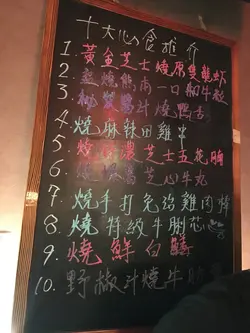 十大心食推介
1. 黃金芝士燒原隻龍蝦
2. 熊南一口牛粒
3. 汁燒鴨舌
4. 燒麻辣田雞串
5. 濃芝士五花腩
6. 芝心牛丸
7. 燒手打免治雞肉棒
8. 燒特級牛脷芯
9. 燒鮮白鱔
10. 野椒汁燒牛